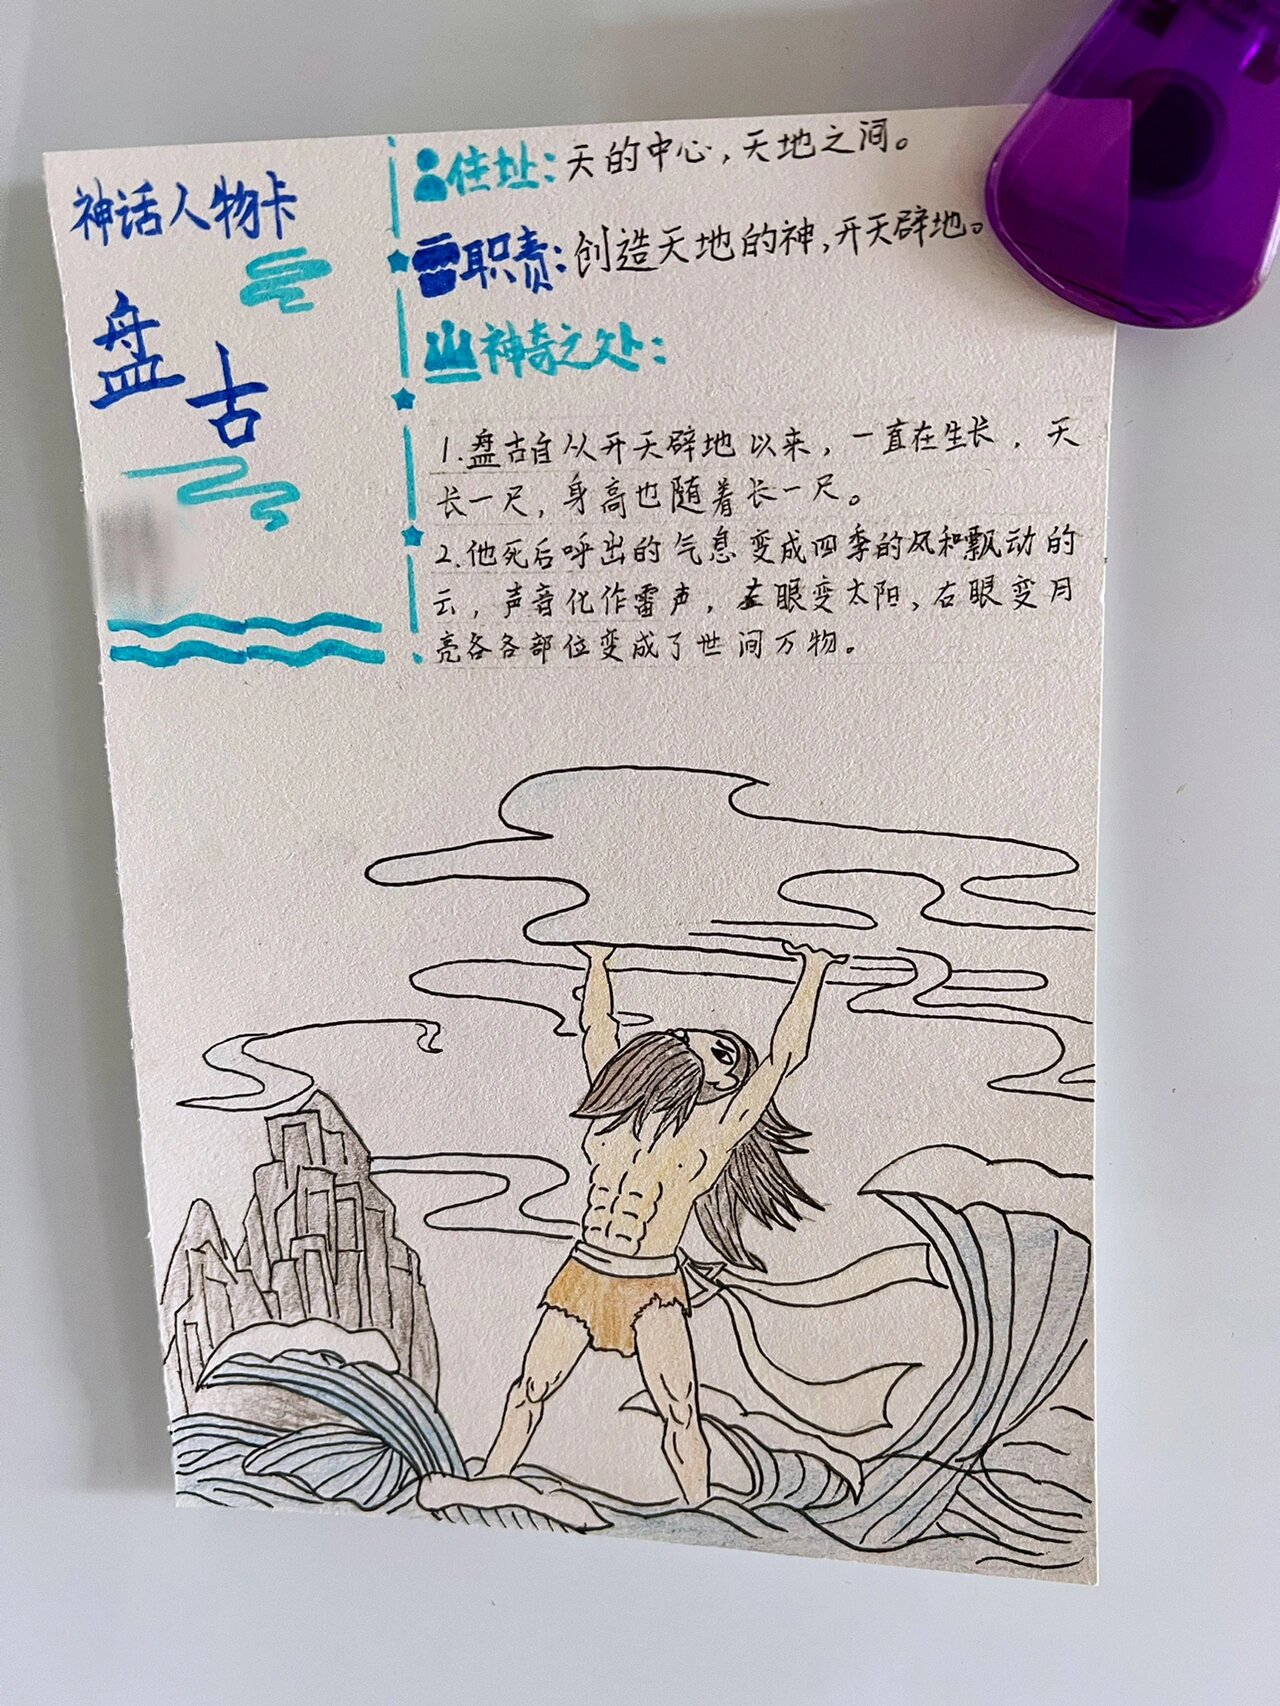 神话人物卡
盘古
住址：天的中心，天地之间。
职责：创造天地的神，开天辟地。
神奇之处：
1.盘古自从开天辟地以来，一直在生长，天
长一尺，身高也随着长一尺。
2.他死后呼出的气息变成四季的风和飘动的
云，声音化作雷声，左眼变太阳，右眼变月
亮各各部位变成了世间万物。